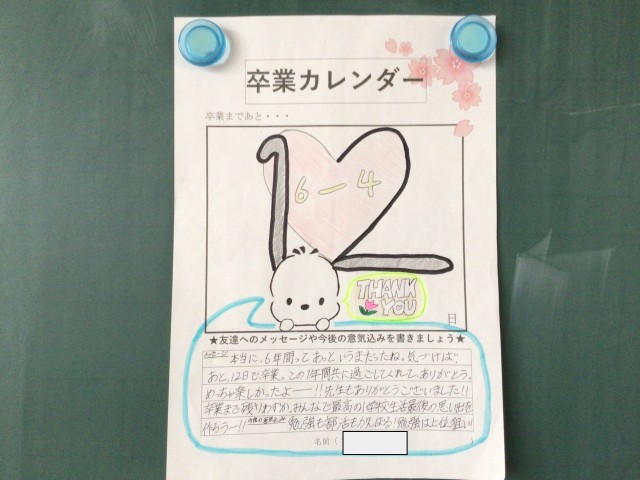 卒業カレンダー
卒業まであと・・・
12
6-4
THANK
YOU
日
★友達へのメッセージや今後の意気込みを書きましょう★
本当に、6年間ってあっというまだったね。気づけば
あと、12日で卒業。この1年間共に過ごしてくれて、ありがとう。
めっちゃ楽しかったよー!!先生もありがとうございました!!
卒業まで残りわずか、みんなで最高の小学校生活最後の思い出を
作ろうー!! 勉強も部活もがんばる!勉強は上位狙い
名前（ ）